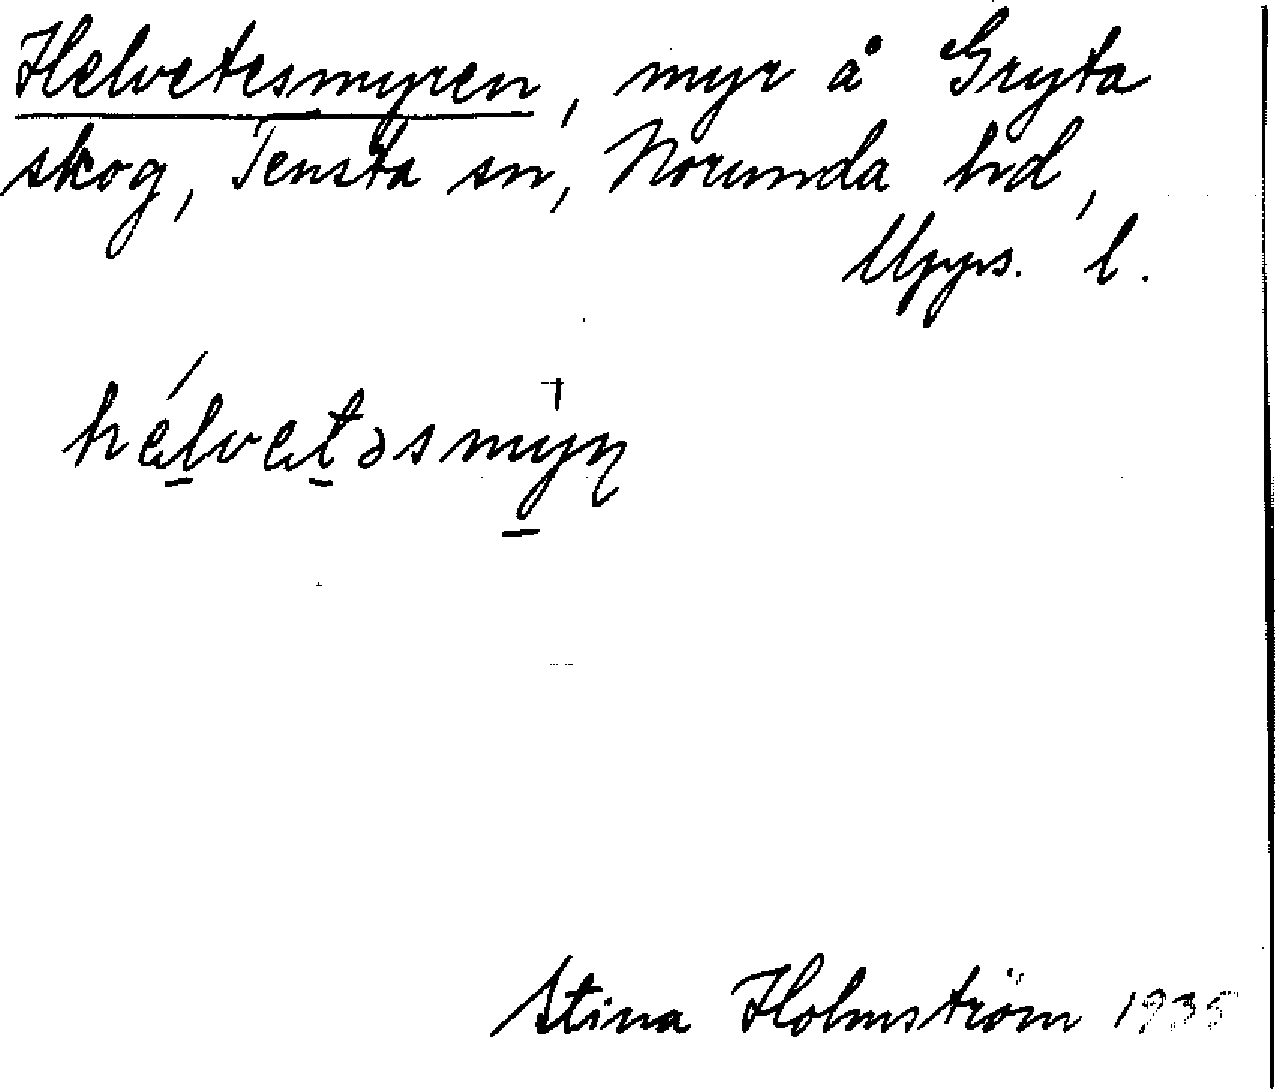 Helvetesmyren, myr å Gryta
skog, Tensta sn, Norunda hd,
Upps. l.
hélvetəsmỳɳ
Stina Holmström 1935